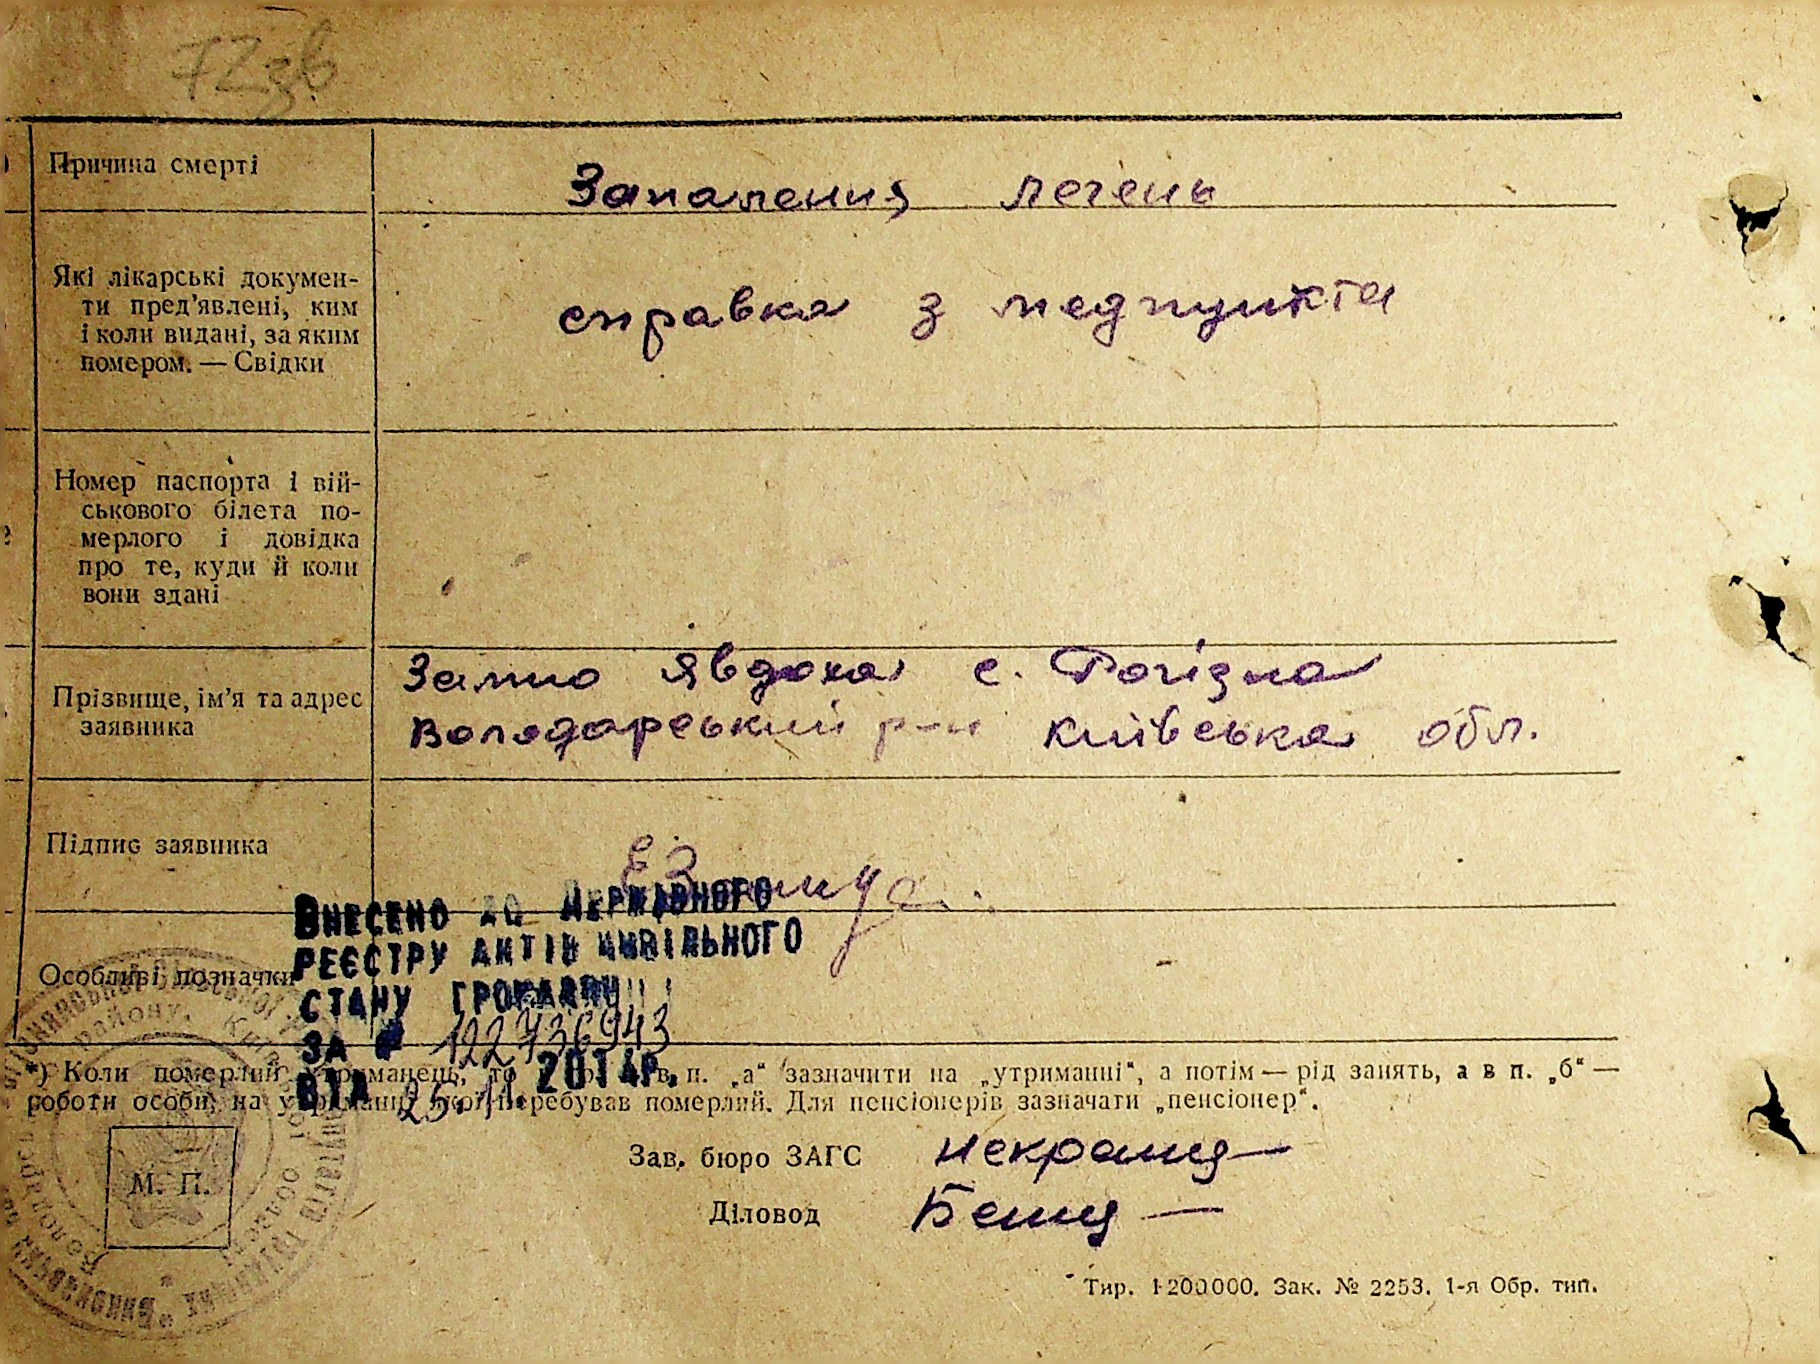 72зв
Причина смерті
Запалення легень
Які лікарські докумен-
ти пред'явлені, ким
і коли видані, за яким
номером. — Свідки
справка з медпункта
Номер паспорта і вій-
ськового білета по-
мерлого і довідка
про те, куди й коли
вони здані
Прізвище, ім'я та адрес
заявника
Явдоха с. Рогізна
Володарський р-н Київська обл.
Підпис заявника
Особливі позначки
ВНЕСЕНО ДО ДЕРЖАВНОГО
РЕЄСТРУ АКТІВ ЦИВІЛЬНОГО
СТАНУ ГРОМАДЯН
ЗА № 122736943
ВІД 25.11.2014р.
*) Коли померлий утриманець, то в п. „а“ зазначити на „утриманні“, а потім — рід занять, а в п. „б“ —
роботи особи, на утриманні якої перебував померлий. Для пенсіонерів зазначати „пенсіонер“.
Зав. бюро ЗАГС
Діловод
М. П.
Тир. 1200000. Зак. № 2253. 1-я Обр. тип.